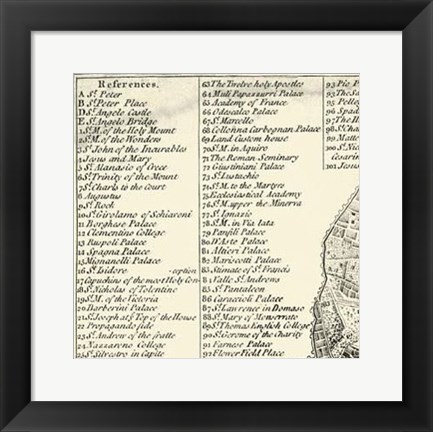 References.
A St. Peter
B St. Peter Place
D St. Angelo Castle
E St. Angelo Bridge
1 St. M. of the Holy Mount
2 St. M. of the Wonders
3 St. John of the Incurables
4 Jesus and Mary
5 St. Atanasio of Grece
6 St. Trinity of the Mount
7 St. Charls to the Court
8 Augustus
9 St. Rock
10 St. Girolamo of Schiavoni
11 Borghese Palace
12 Clementine College
13 Ruspoli Palace
14 Spagna Palace
15 Mignanelli Palace
16 St. Isidore -ception
17 Capuchins of the most Holy Con
18 St. Nicholas of Tolentino
19 St. M. of the Victoria
20 Barberini Palace
21 St. Joseph at ye Top of the House
22 Propaganda fide
23 St. Andrew of the fratte
24 Nazzareno College
25 St. Silvestro in Capite
63 The Twelve holy Apostles
64 Muli Papazzurri Palace
65 Academy of France
66 Odescalco Palace
67 St. Marcello
68 Collonna Carbognan Palace
69 Land Custom house
70 St. M. in Aquiro
71 The Roman Seminary
72 Giustiniani Palace
73 St. Eustachio
74 St. M. to the Martyrs
75 Ecclesiastical Academy
76 St. M. upper the Minerva
77 St. Ignazio
78 St. M. in Via lata
79 Panfili Palace
80 D'Aste Palace
81 Altieri Palace
82 Mariscotti Palace
83 Stimate of St. Francis
84 Valle St. Andrews
85 St. Pantaleon
86 Caraccioli Palace
87 St. Lawrence in Domaso
88 St. Mary of Monserrato
89 St. Thomas English College
90 St. Gerome of the Charity
91 Farnese Palace
92 Flower Field Place
93 Pio P
94 The Sa
95 Pelleg
96 St. Sa
97 The H
98 St. Cha
99 Matte
100 St. Nic
Cesarin
101 Jesus